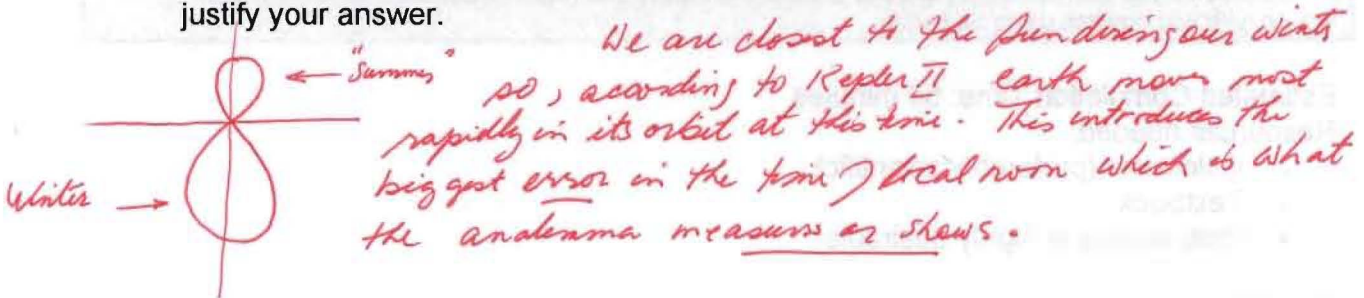 justify your answer.
"Summer"
We are closest to the sun during our winter
so, according to Kepler II earth moves most
rapidly in its orbit at this time. This introduces the
biggest error in the time of local noon which is what
the analemma measures or shows.
Winter